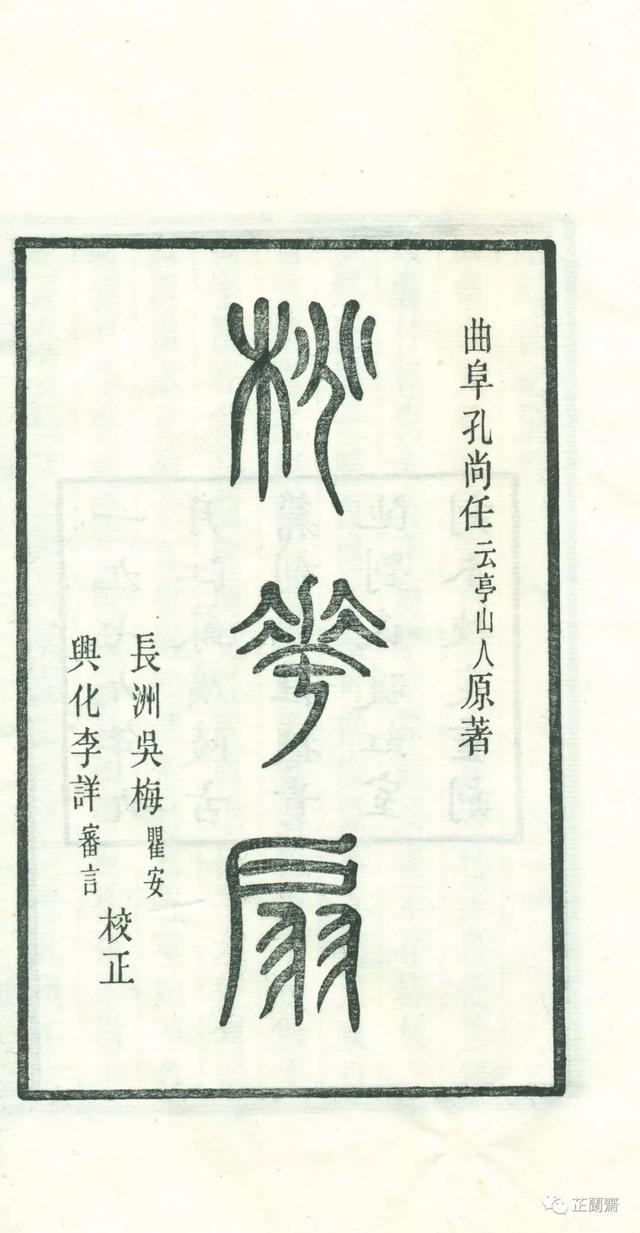 曲阜孔尚任云亭山人原著
桃花扇
長洲吳梅瞿安
興化李詳審言
校正
芷蘭齋